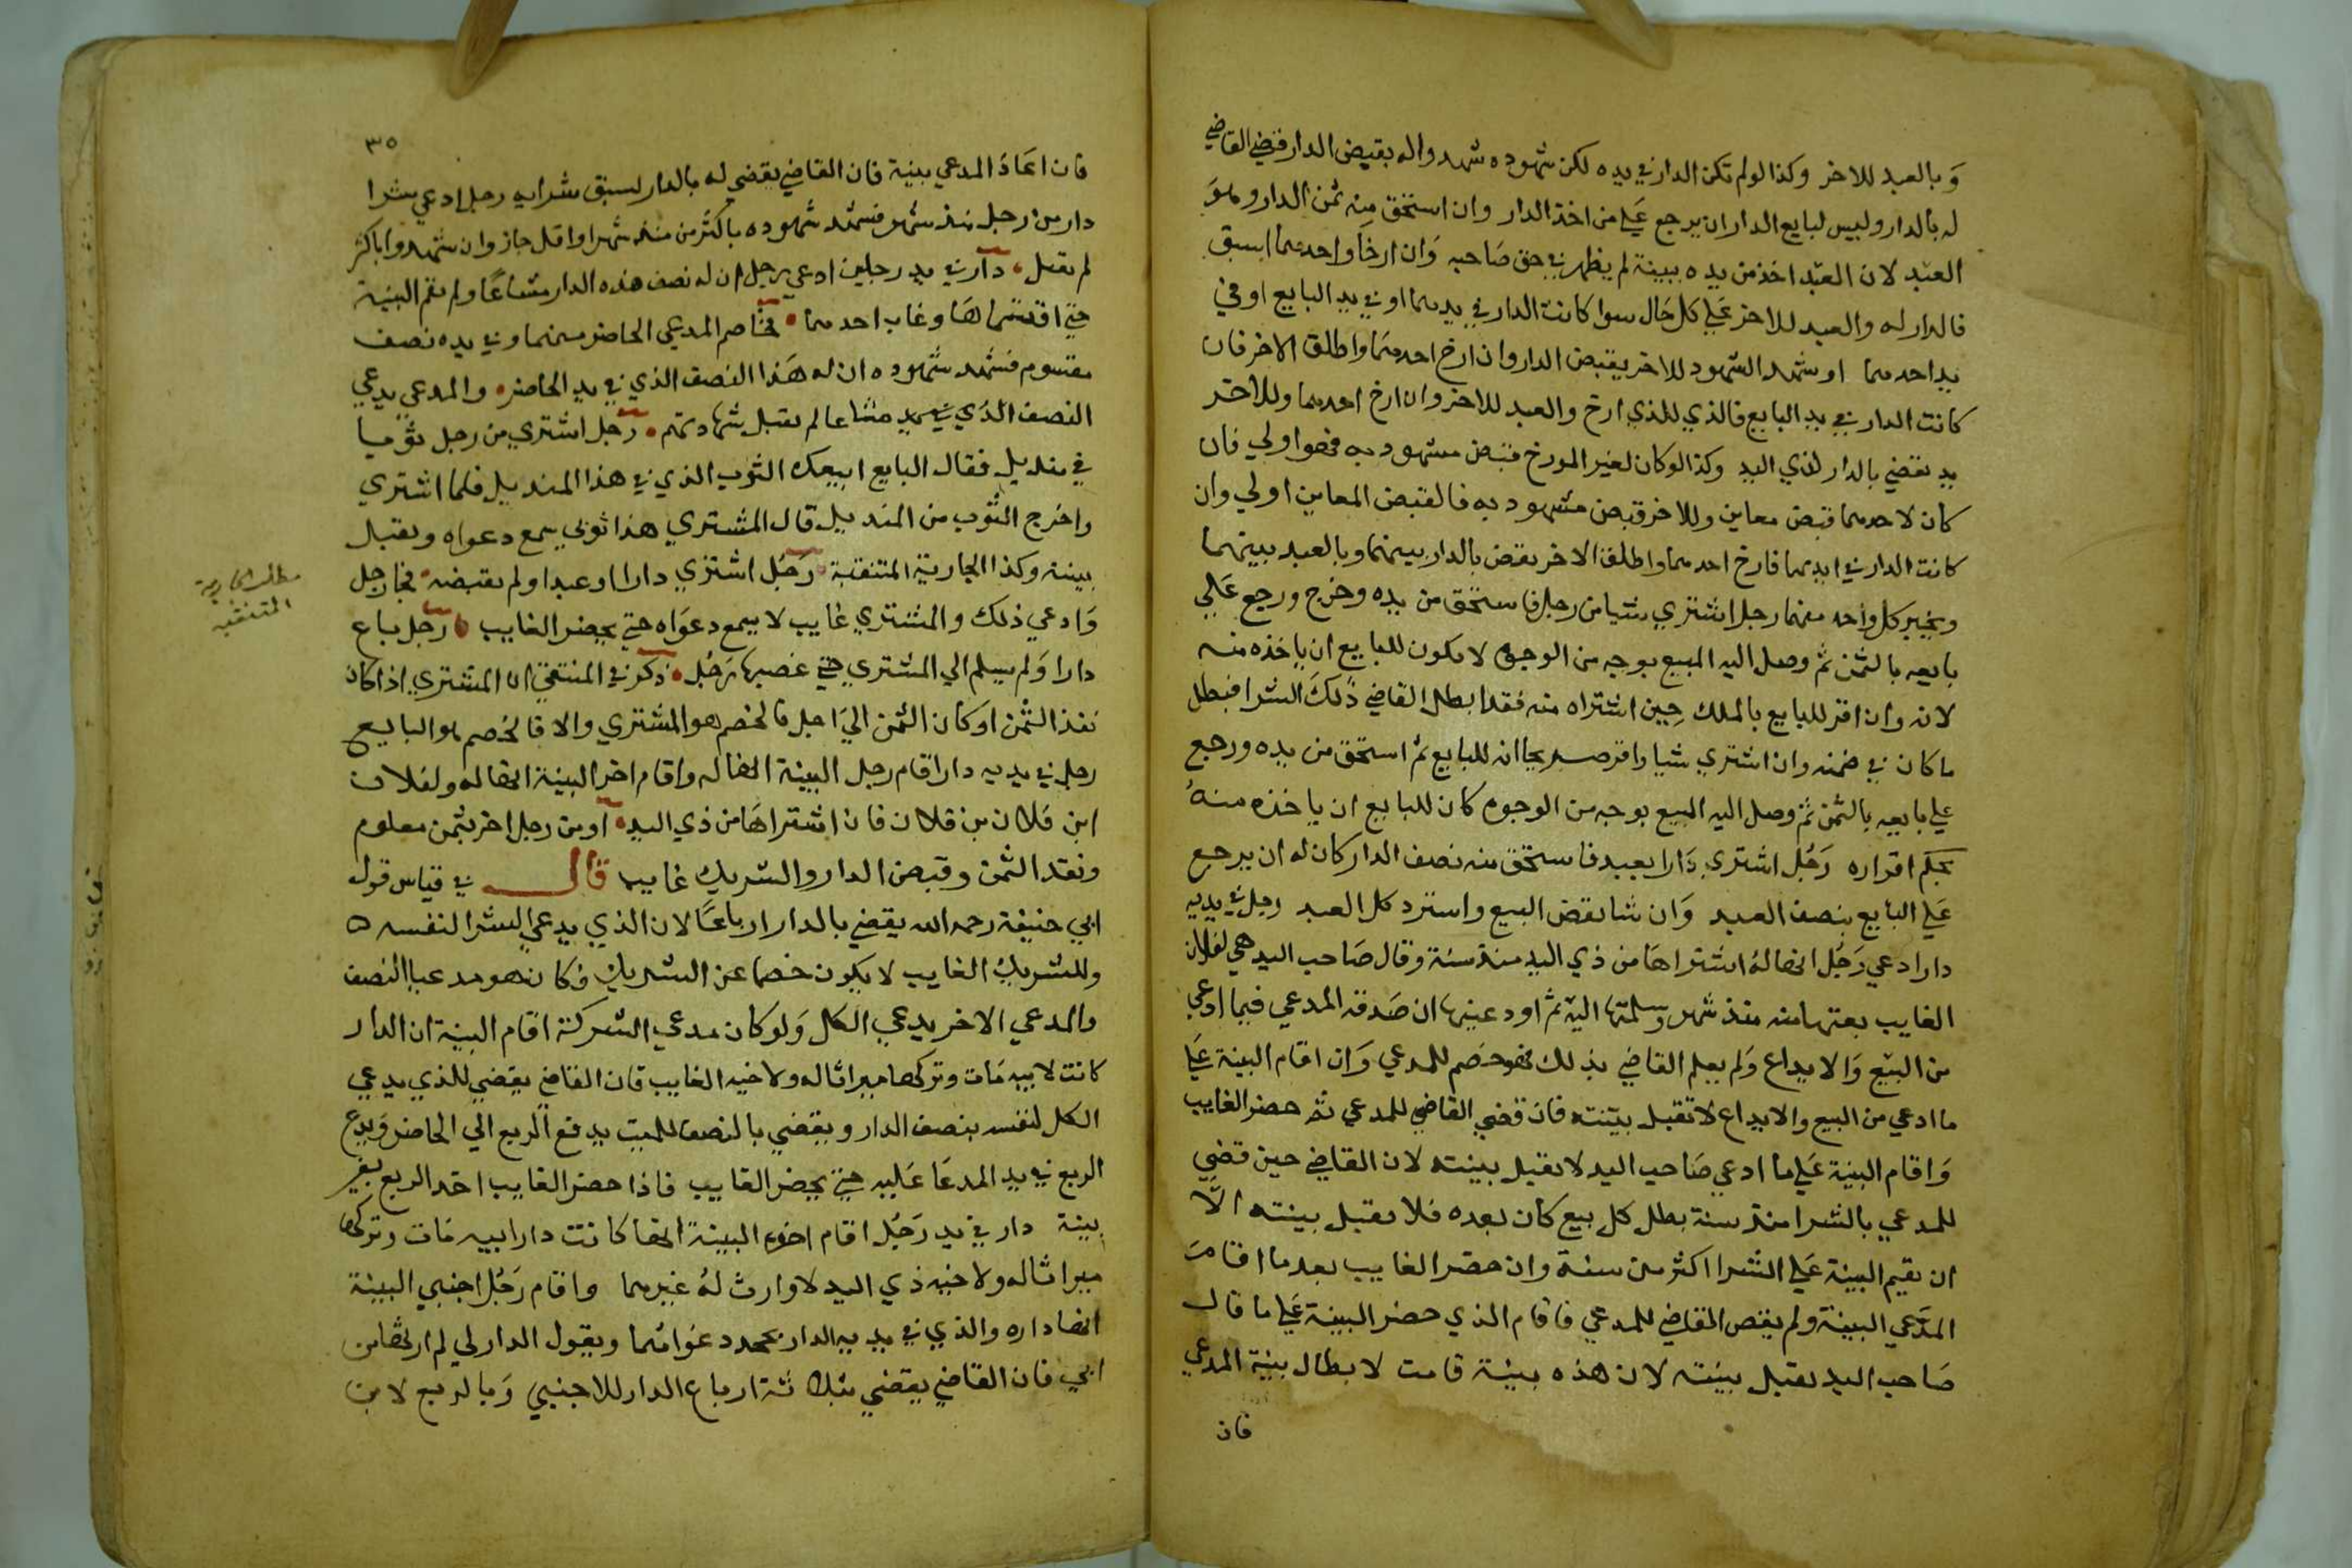 وبالعبد للاخر وكذا لو لم تكن الدار في يده لكن شهوده شهدوا له بقبض الدار قضي القاضي
له بالدار وليس لبايع الدار ان يرجع علي من اخذ الدار وان استحق منه ثمن الدار وهو
العبد لان العبد اخذ من يده ببينة لم يظهر في حق صاحبه وان ارخا واحدهما اسبق
فالدار له والعبد للاخر علي كل حال سوا كانت الدار في يدهما او في يد البايع او في
يد احدهما او شهد الشهود للاخر بقبض الدار وان ارخ احدهما واطلق الاخر فان
كانت الدار في يد البايع فالذي للذي ارخ والعبد للاخر وان ارخ احدهما وللاخر
يد يقضي بالدار لذي اليد وكذا لو كان لغير المورخ قبض مشهود به فهو اولي فان
كان لاحدهما قبض معاين وللاخر قبض مشهود به فالقبض المعاين اولي وان
كانت الدار في ايديهما فارخ احدهما واطلق الاخر يقض بالدار بينهما وبالعبد بينهما
ويخير كل واحد منهما رجل اشتري شيا من رجل فاستحق من يده وخرج ورجع علي
بايعه بالثمن ثم وصل اليه المبيع بوجه من الوجوه لا يكون للبايع ان ياخذه منه
لانه وان اقر للبايع بالملك حين اشتراه منه فقد ابطل القاضي ذلك الشرا فبطل
ما كان في ضمنه وان اشتري شيا واقر صريحا انه للبايع ثم استحق من يده ورجع
علي بايعه بالثمن ثم وصل اليه المبيع بوجه من الوجوه كان للبايع ان ياخذه منه
بحكم اقراره رجل اشتري دارا بعبد فاستحق منه نصف الدار كان له ان يرجع
علي البايع بنصف العبد وان شا نقض البيع واسترد كل العبد رجل في يديه
دار ادعي رجل انها له اشتراها من ذي اليد منذ سنة وقال صاحب اليد هي لفلان
الغايب بعتها منه منذ شهر وسلمتها اليه ثم اودعنيها ان صدقه المدعي فيما ادعي
من البيع والايداع ولم يعلم القاضي بذلك فهو خصم للمدعي وان اقام البينة علي
ما ادعي من البيع والايداع لا تقبل بينته فان قضي القاضي للمدعي ثم حضر الغايب
واقام البينة علي ما ادعي صاحب اليد لا يقبل بينته لان القاضي حين قضي
للمدعي بالشرا منذ سنة بطل كل بيع كان بعده فلا يقبل بينته الا
ان يقيم البينة علي الشرا اكثر من سنة وان حضر الغايب بعد ما اقامت
المدعي البينة ولم يقض القاضي للمدعي فاقام الذي حضر البينة علي ما قال
صاحب اليد يقبل بينته لان هذه بينة قامت لابطال بينة المدعي
فان
٣٥
فان اعاد المدعي بينة فان القاضي يقضي له بالدار لسبق شرايه رجل ادعي شرا
دار من رجل منذ شهر فشهد شهوده باكثر من منذ شهر او اقل جاز وان شهدوا باكثر
لم يقبل دار في يد رجلين ادعي رجل ان له نصف هذه الدار مشاعا ولم يقم البينة
حتي اقتسماها وغاب احدهما فخاصم المدعي الحاضر منهما وفي يده نصف
مقسوم فشهد شهوده ان له هذا النصف الذي في يد الحاضر والمدعي يدعي
النصف الذي في يده مشاعا لم يقبل شهادتهم رجل اشتري من رجل ثوبا
في منديل فقال البايع ابيعك الثوب الذي في هذا المنديل فلما اشتري
واخرج الثوب من المنديل قال المشتري هذا ثوبي يسمع دعواه ويقبل
بينته وكذا الجارية المتنقبة رجل اشتري دارا او عبدا ولم يقبضه فجا رجل
وادعي ذلك والمشتري غايب لا يسمع دعواه حتي يحضر الغايب رجل باع
دارا ولم يسلم الي المشتري حتي غصبها رجل ذكر في المنتقي ان المشتري اذا كان
نقد الثمن او كان الثمن الي اجل فالخصم هو المشتري والا فالخصم هو البايع
رجل في يديه دار اقام رجل البينة انها له واقام اخر البينة انها له ولفلان
ابن فلان بن فلان فان اشتراها من ذي اليد او من رجل اخر بثمن معلوم
ونقد الثمن وقبض الدار والشريك غايب قال في قياس قول
ابي حنيفة رحمه الله يقضي بالدار ارباعا لان الذي يدعي الشرا لنفسه
وللشريك الغايب لا يكون خصما عن الشريك فكان هو مدعيا النصف
والمدعي الاخر يدعي الكل ولو كان مدعي الشركة اقام البينة ان الدار
كانت لابيه مات وتركها ميراثا له ولاخيه الغايب فان القاضي يقضي للذي يدعي
الكل لنفسه بنصف الدار ويقضي بالنصف للميت يدفع الربع الي الحاضر ويدع
الربع في يد المدعا عليه حتي يحضر الغايب فاذا حضر الغايب اخذ الربع بغير
بينة دار في يد رجل اقام اخوه البينة انها كانت دار ابيه مات وتركها
ميراثا له ولاخيه ذي اليد لا وارث له غيرهما واقام رجل اجنبي البينة
انها داره والذي في يديه الدار يجحد دعواهما ويقول الدار لي لم ارثها من
ابي فان القاضي يقضي بثلاثة ارباع الدار للاجنبي وبالربع لابن
مطلب الجارية
المتنقبه